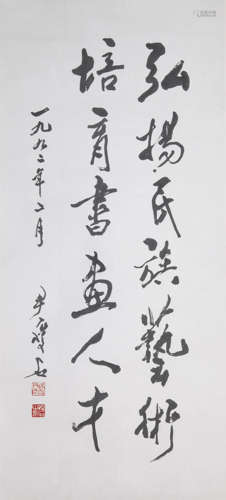 弘揚民族藝術
培育書畫人才
一九九二年二月
尹瘦石